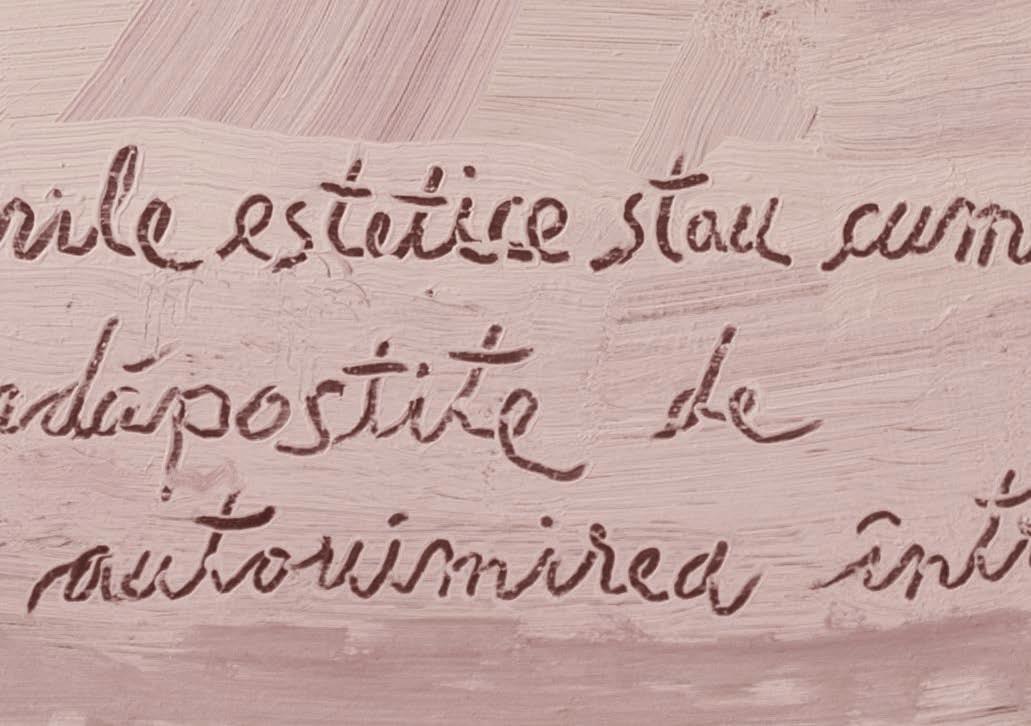 rile estetice stau cum
adăpostite de
autouimirea într